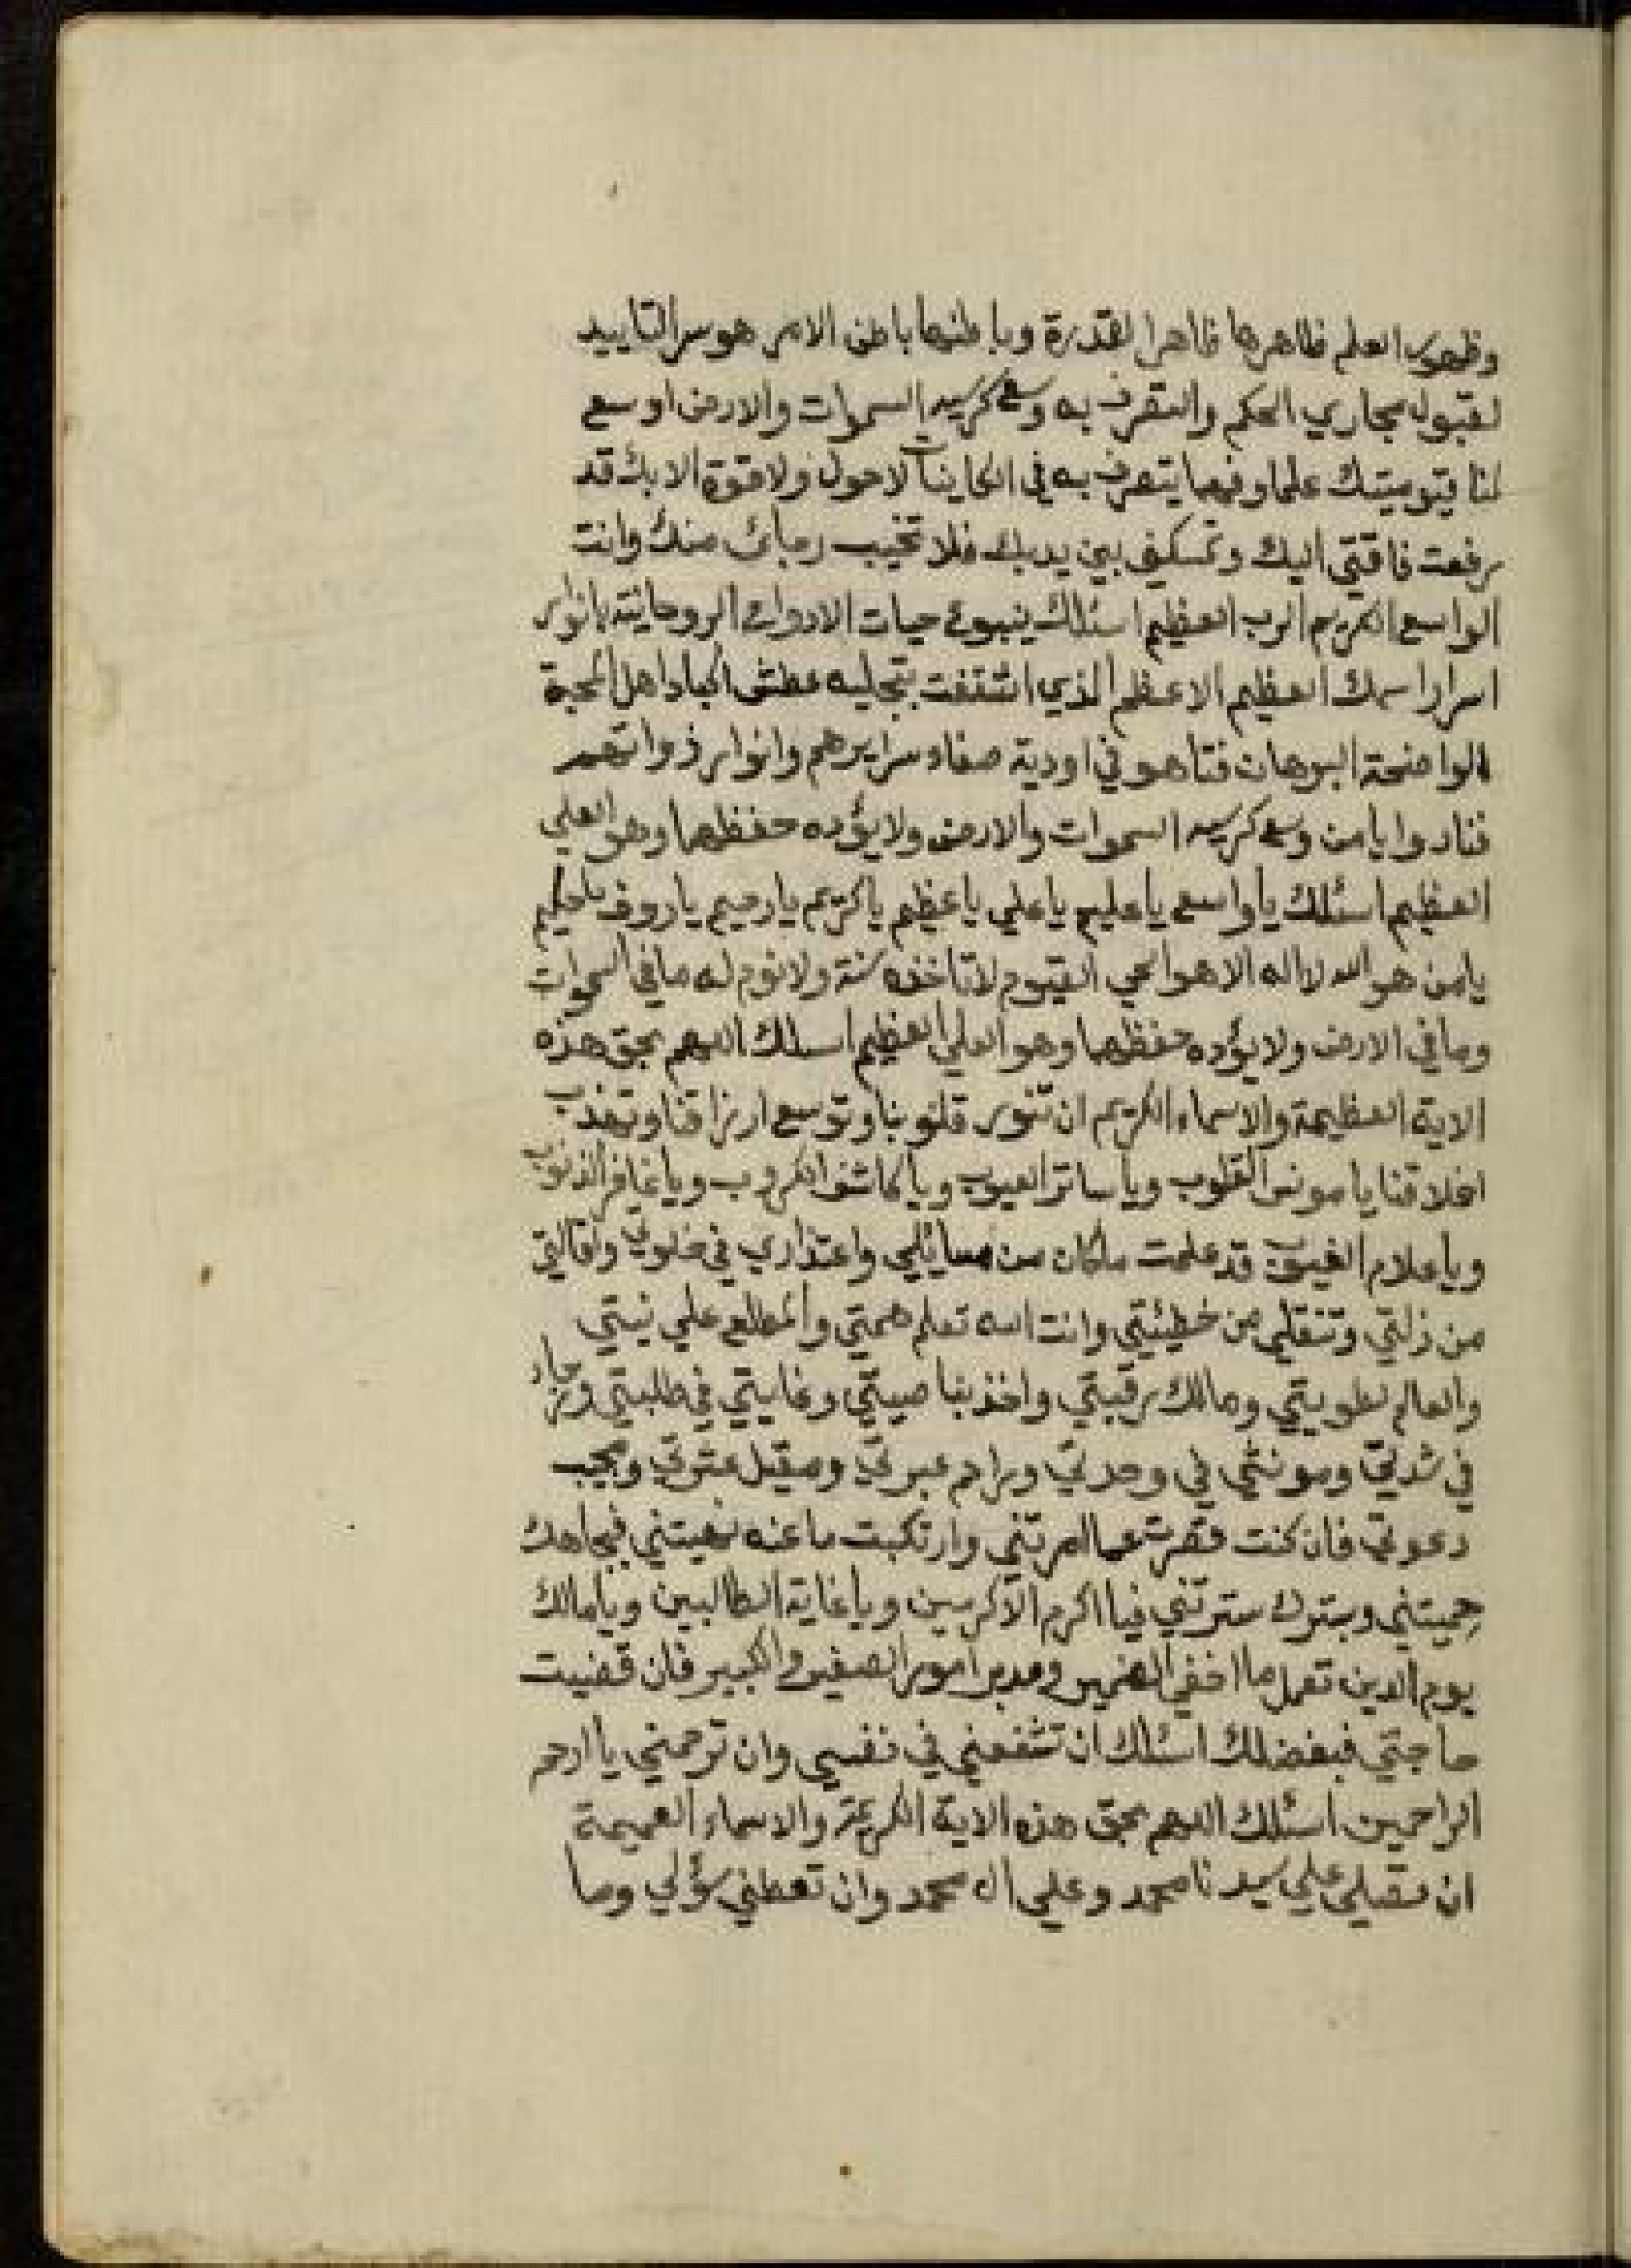 وظهور العلم ظاهرها ظاهر القدرة وباطنها باطن الامر هو سر التاييد
لقبول مجاري الحكم والتصرف به وسع كرسيه السموات والارض اوسع
لنا قيوميتك علما وفهما يتصرف به في الكاينات لاحول ولا قوة الا بك قد
رفعت فاقتي اليك وتمسكني بين يديك فلا تخيب رجائ منك وانت
الواسع الكريم الرب العظيم اسئلك ينبوع حيات الارواح الروحانية بانوار
اسرار اسمك العظيم الاعظم الذي انتقفت بتجليه عطش اكباد اهل المحبة
الواضحة البرهان فتاهو في اودية صفاء سرايرهم وانوار ذواتهم
فنادوا يا من وسع كرسيه السموات والارض ولا يؤده حفظهما وهو العلي
العظيم اسئلك يا واسع يا عليم يا علي يا عظيم يا كريم يا رحيم يا روف يا حكيم
يا من هو الله لا اله الا هو الحي القيوم لا تاخذه سنة ولا نوم له ما في السموات
وما في الارض ولا يؤده حفظهما وهو العلي العظيم اسلك اللهم بحق هذه
الاية العظيمة والاسماء الكريم ان تنور قلوبنا وتوسع ارزاقنا وتهذب
اخلاقنا يا مونس القلوب ويا ساتر العيوب ويا كاشف الكروب ويا غافر الذنوب
ويا علام الغيوب قد علمت ما كان من مسايلي واعتذاري في خلوتي واقالتي
من زلتي وتنقلي من خطيئتي وانت الله تعلم همتي والمطلع علي نيتي
والعالم لطويتي ومالك رقبتي واخذ بناصيتي وغايتي في طلبتي ورجاء
في شدتي ومونسي في وحدتي وراحم عبرتي ومقيل عثرتي ومجيب
دعوتي فان كنت قصرت عما امرتني وارتكبت ما عنه نهيتني فبجاهك
حميتني وبسترك سترتني فيا اكرم الاكرمين ويا غاية الطالبين ويا مالك
يوم الدين تعمل ما اخفي الضمير ومدبر امور الصغير والكبير فان قضيت
حاجتي فبفضلك اسئلك ان تشفعني في نفسي وان ترحمني يا ارحم
الراحمين اسئلك اللهم بحق هذه الاية الكريمة والاسماء العميمة
ان تصلي علي سيدنا محمد وعلي ال محمد وان تعطني سؤلي وما